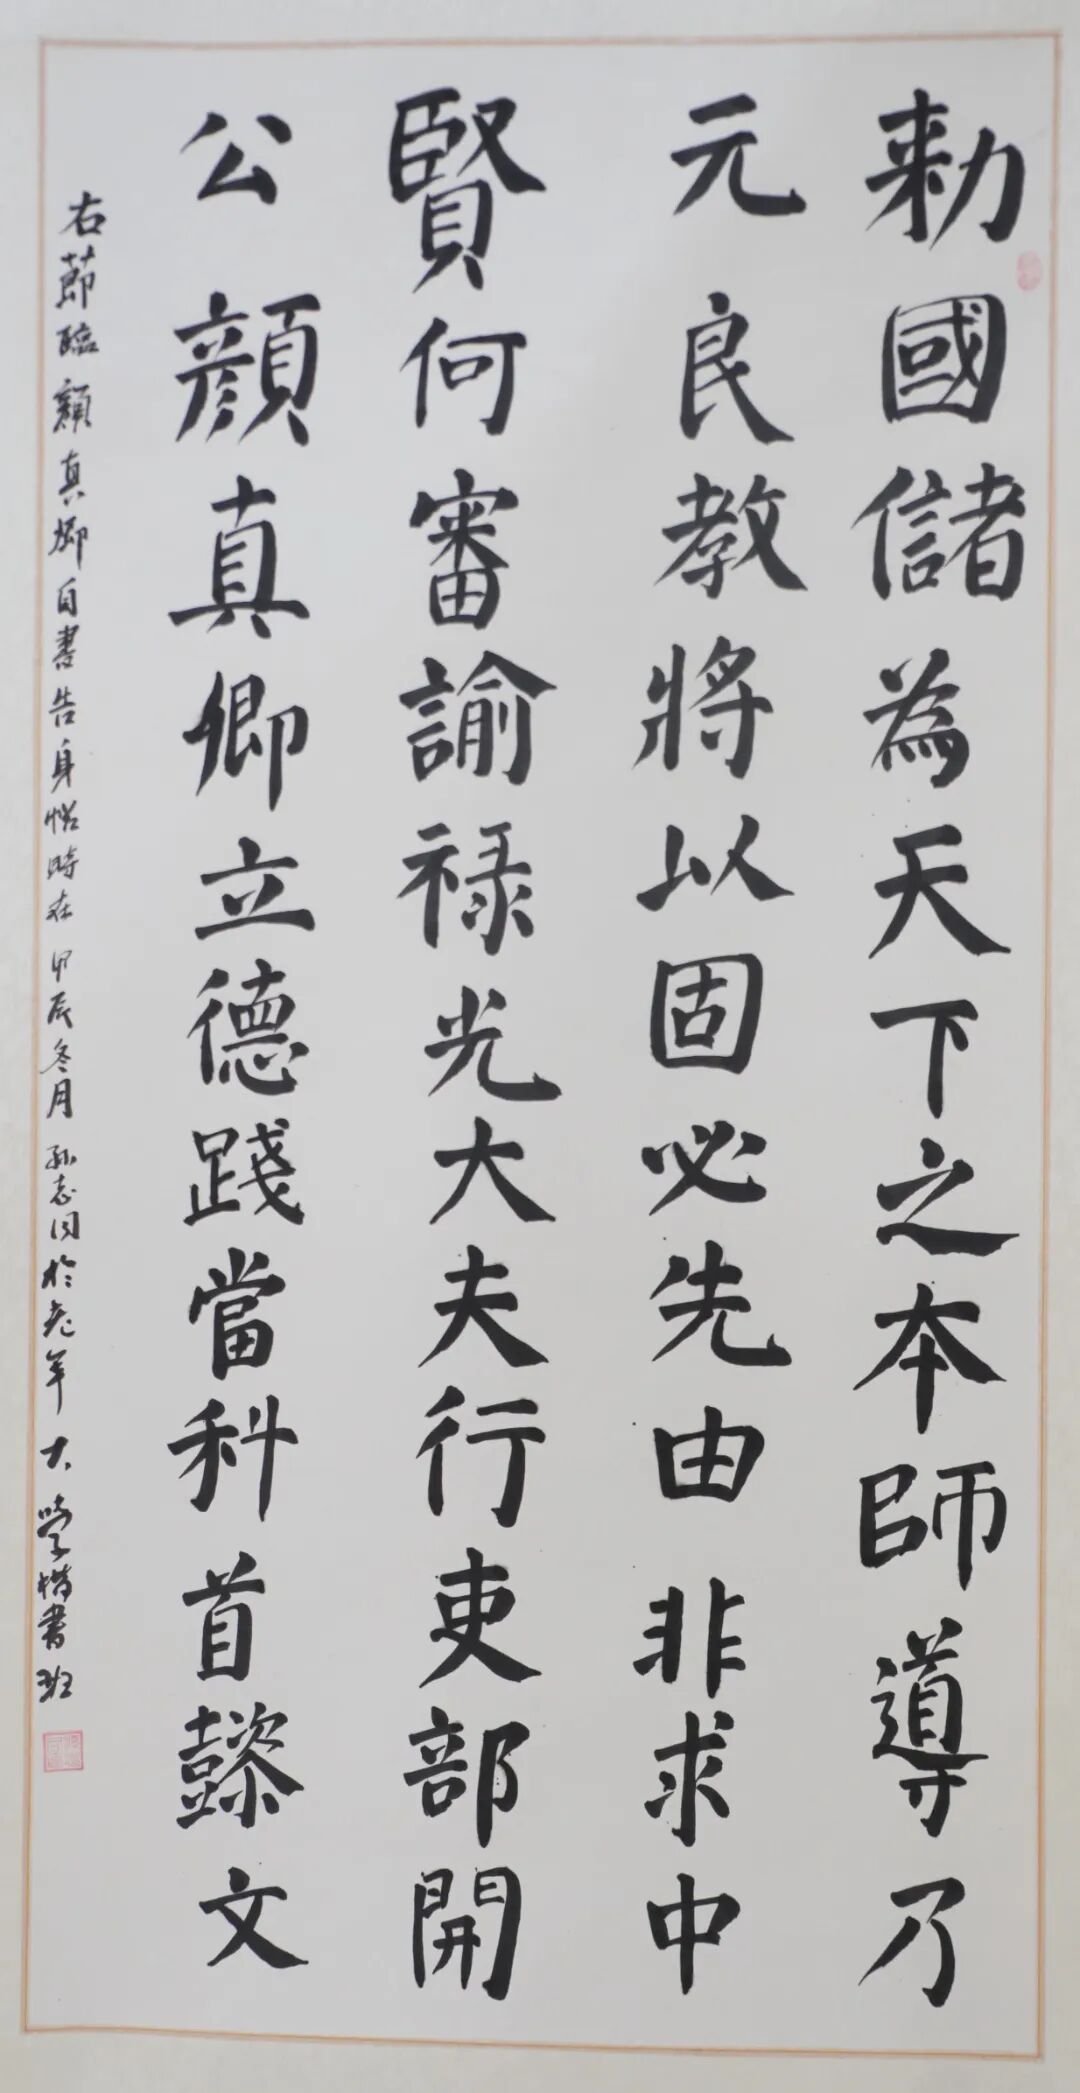 勑國儲為天下之本師導乃
元良教將以固必先由非求中
賢何審諭禄光大夫行吏部開
公顔真卿立德踐當科首懿文
右節臨顏真卿自書告身帖時在甲辰冬月孫志国於老年大學楷書班